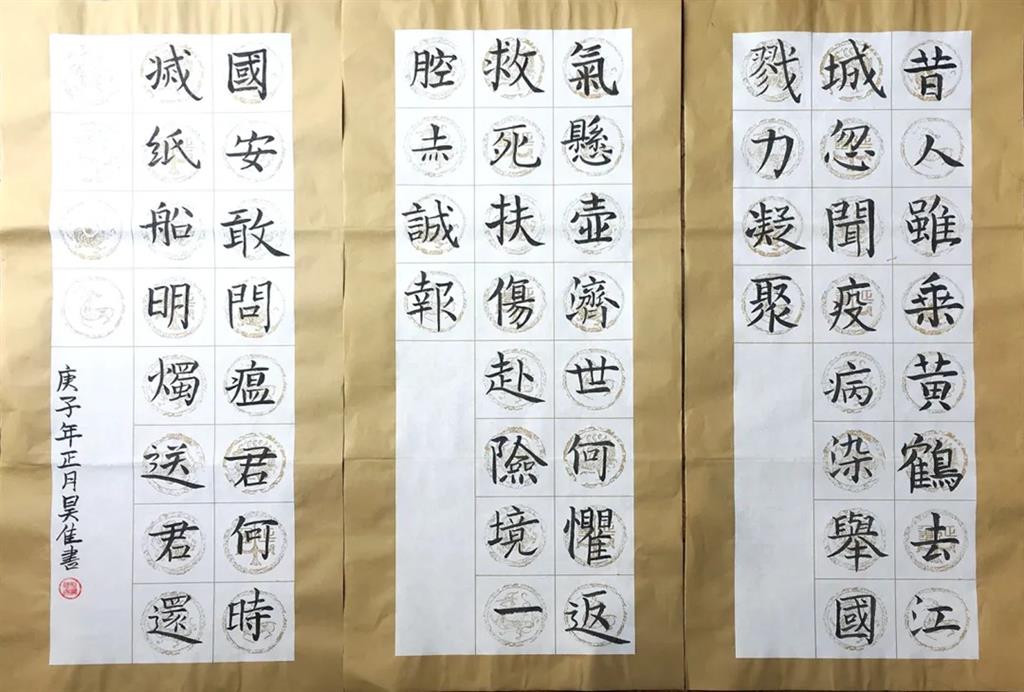 昔人雖乘黃鶴去江
城忽聞疫病染舉國
戮力凝聚
氣懸壺濟世何懼返
救死扶傷赴險境一
腔赤誠報
國安敢問瘟君何時
滅紙船明燭送君還
庚子年正月昊佳書